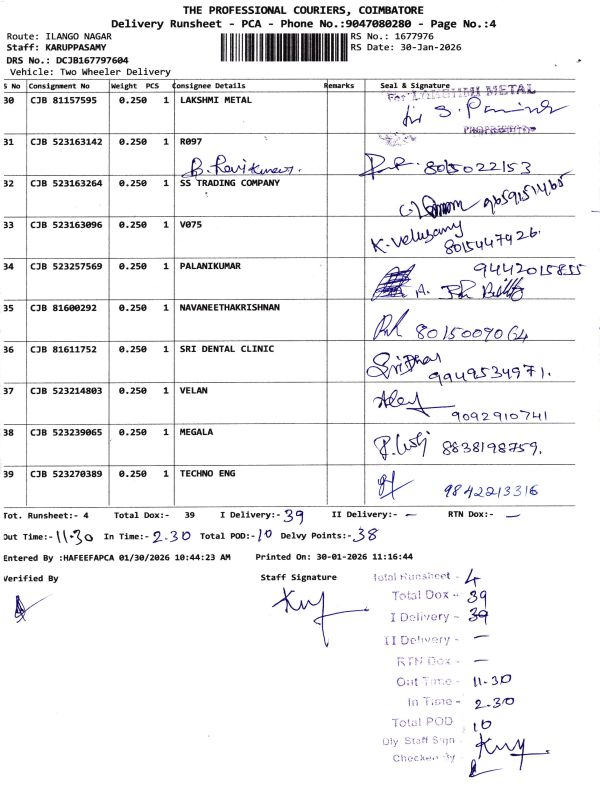 THE PROFESSIONAL COURIERS, COIMBATORE
Delivery Runsheet - PCA - Phone No.:9047080280 - Page No.:4
Route: ILANGO NAGAR RS No.: 1677976
Staff: KARUPPASAMY RS Date: 30-Jan-2026
DRS No.: DCJB167797604
Vehicle: Two Wheeler Delivery
S No Consignment No Weight PCS Consignee Details Remarks Seal & Signature
30 CJB 81157595 0.250 1 LAKSHMI METAL For LAKSHMI METAL
PROPRIETOR
31 CJB 523163142 0.250 1 R097
B. Ravikumar. 8015022153
32 CJB 523163264 0.250 1 SS TRADING COMPANY
9659151465
33 CJB 523163096 0.250 1 V075 K. Velusamy
8015447926.
34 CJB 523257569 0.250 1 PALANIKUMAR 9442015855
A.
35 CJB 81600292 0.250 1 NAVANEETHAKRISHNAN
8015009064
36 CJB 81611752 0.250 1 SRI DENTAL CLINIC Sridhar
9949534971.
37 CJB 523214803 0.250 1 VELAN
9092910741
38 CJB 523239065 0.250 1 MEGALA
8838198759.
39 CJB 523270389 0.250 1 TECHNO ENG
9842213316
Tot. Runsheet:- 4 Total Dox:- 39 I Delivery:- 39 II Delivery:- - RTN Dox:- -
Out Time:- 11.30 In Time:- 2.30 Total POD:- 10 Delvy Points:- 38
Entered By :HAFEEFAPCA 01/30/2026 10:44:23 AM Printed On: 30-01-2026 11:16:44
Verified By Staff Signature
Total Runsheet - 4
Total Dox - 39
I Delivery - 39
II Delivery - -
RTN Dox - -
Out Time - 11.30
In Time - 2.30
Total POD 10
Dly. Staff Sign -
Checked By -